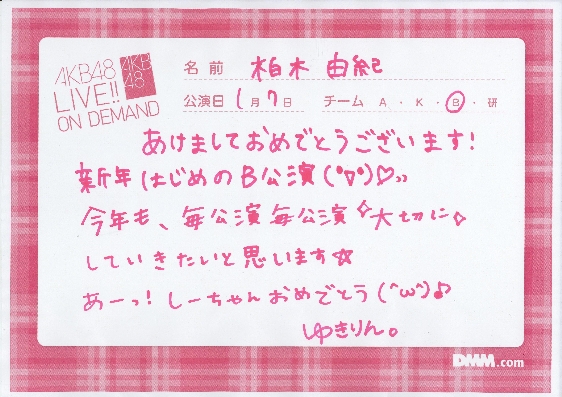 AKB48
LIVE!!
ON DEMAND
AKB
48
名前 柏木 由紀
公演日 1月7日 チーム A・K・B・研
あけましておめでとうございます!
新年はじめのB公演(°∇°)♡››
今年も、毎公演毎公演✧大切に✧
していきたいと思います☆
あーっ!しーちゃんおめでとう(^ω^)♪
ゆきりん。
DMM.com